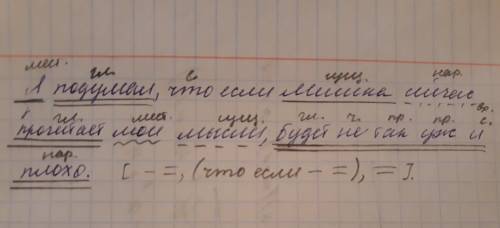 мест. гл. с. сущ. нар.
Я подумал, что если Мишка сейчас
гл. мест. сущ. гл. ч. пр. пр. с.
прочитает мои мысли, будет не так уж и
нар.
плохо. [ – =, (что если – =), = ].